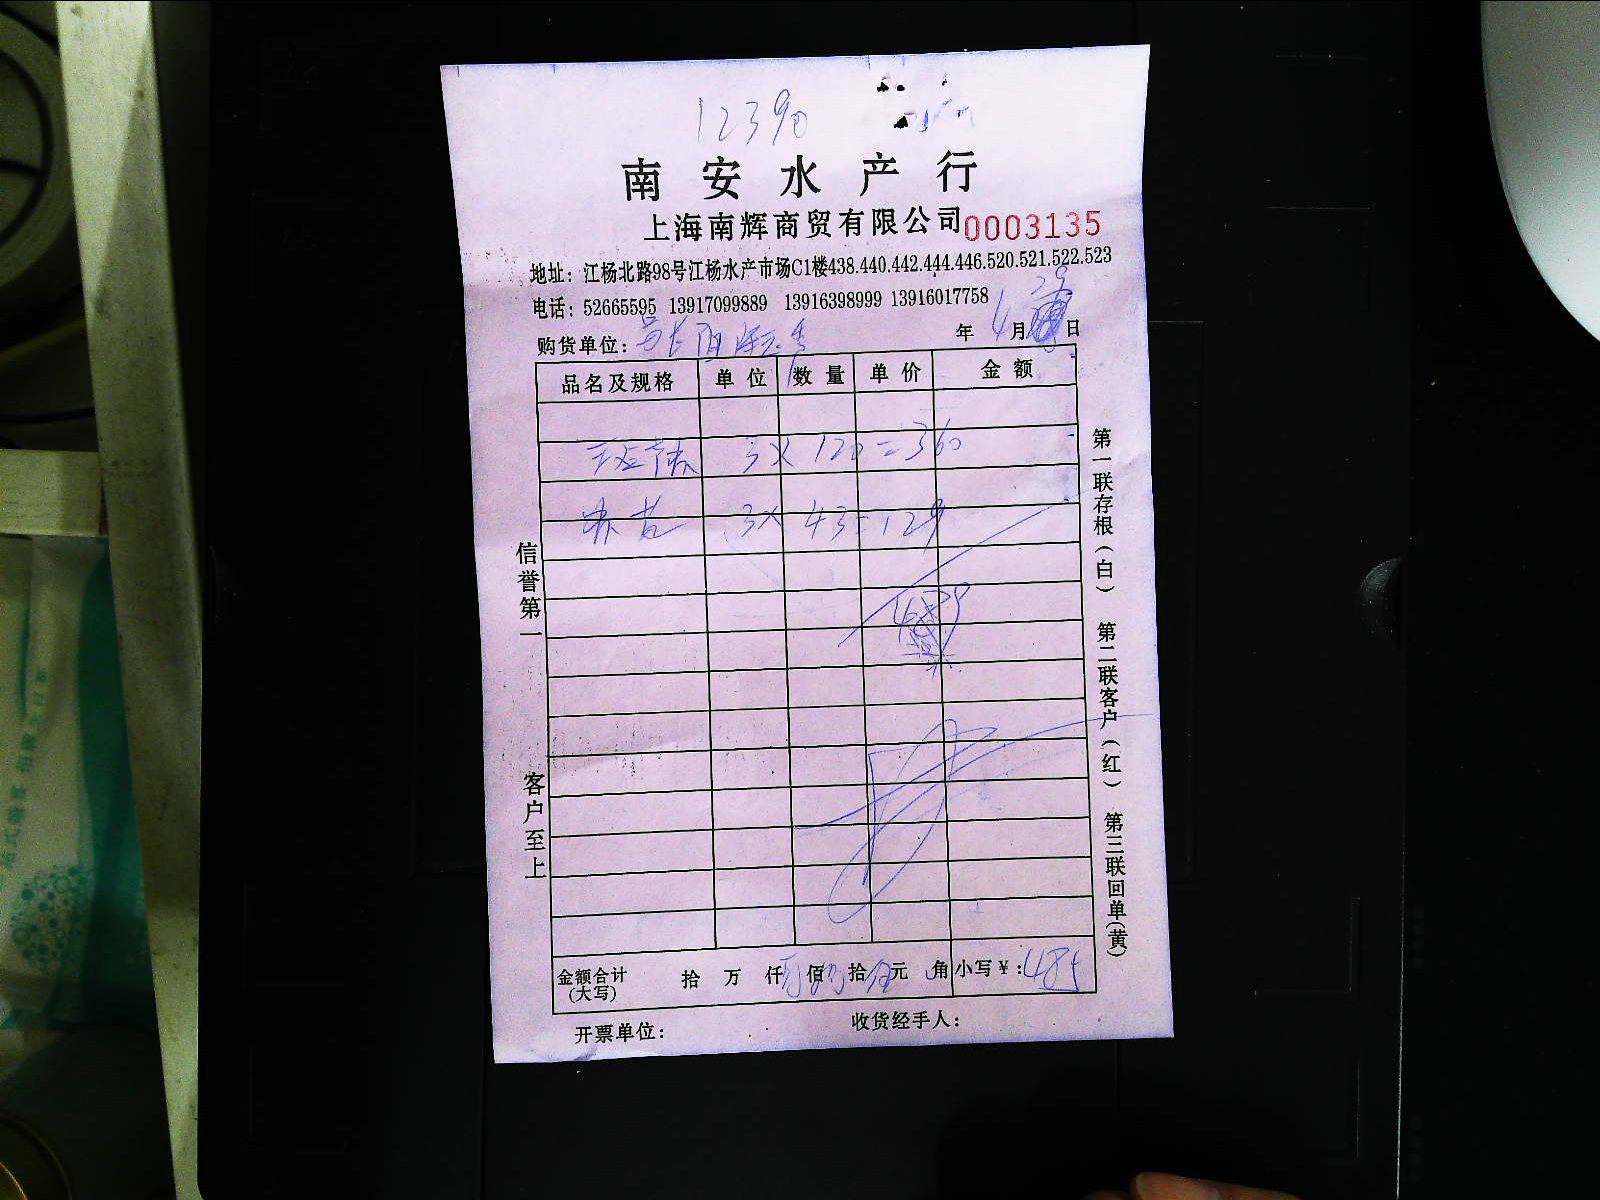 12390
南安水产行
上海南辉商贸有限公司 0003135
地址：江杨北路98号江杨水产市场C1楼438.440.442.444.446.520.521.522.523
电话：52665595 13917099889 13916398999 13916017758
购货单位： 年 4月 29 日
品名及规格 单位 数量 单价 金额
3× 120=360
3× 43=129
489
信誉第一
客户至上
第一联存根(白) 第二联客户(红) 第三联回单(黄)
金额合计(大写) 拾 万 仟 佰 拾 元 角 小写￥: 485
开票单位： 收货经手人：